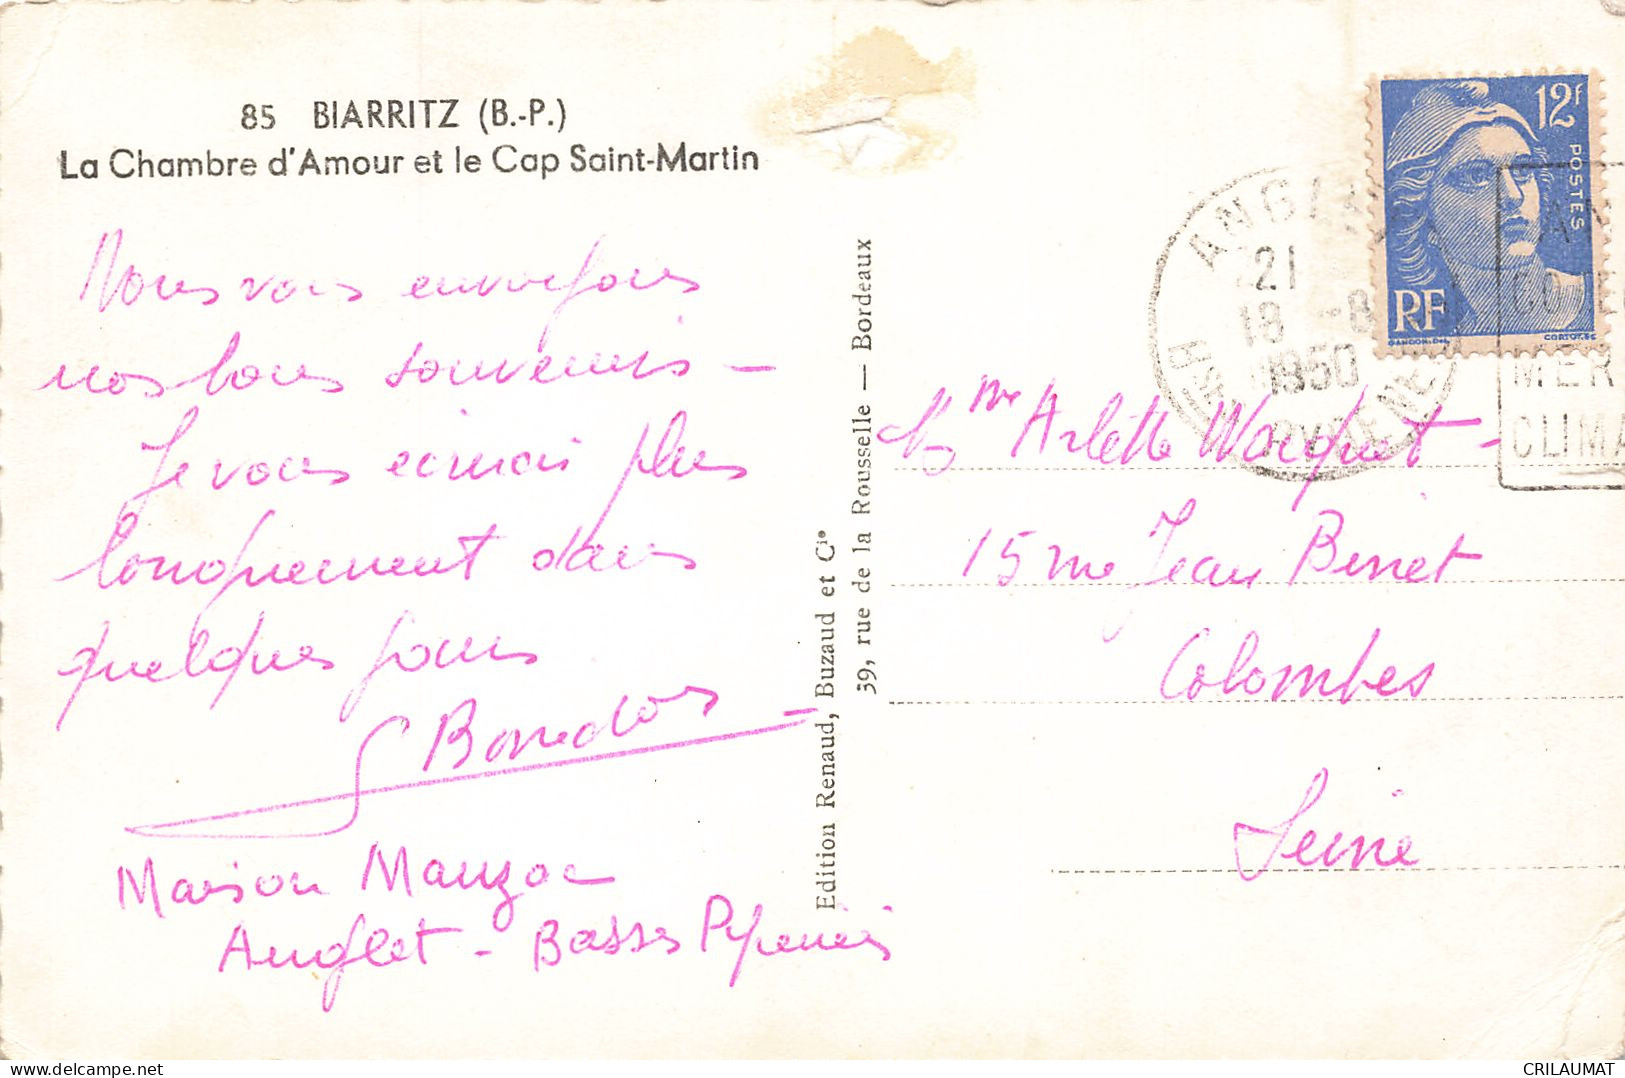 85 BIARRITZ (B.-P.)
La Chambre d'Amour et le Cap Saint-Martin
Nous vous envoyons
nos bons souvenirs —
Je vous écrirai plus
longuement dans
quelques jours
Maison Mauzac
Anglet - Basses Pyrénées
Edition Renaud, Buzaud et Cie
39, rue de la Rousselle — Bordeaux
12F
POSTES
RF
GANDON.DEL
CORTOT.SC
ANGLET
21
18 -8
1950
PYRENEES
COTE
MER
CLIMA
Mme Arlette Wacquet -
15 rue Jean
Colombes
Seine
CRILAUMAT